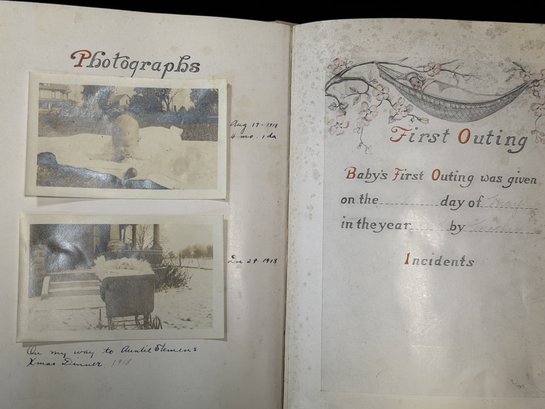 Photographs
Aug 17-1918
4 mo. 1 da
Dec 29 1918
On my way to Auntie
Xmas Dinner 1918
First Outing
Baby's First Outing was given
on the day of
in the year by
Incidents